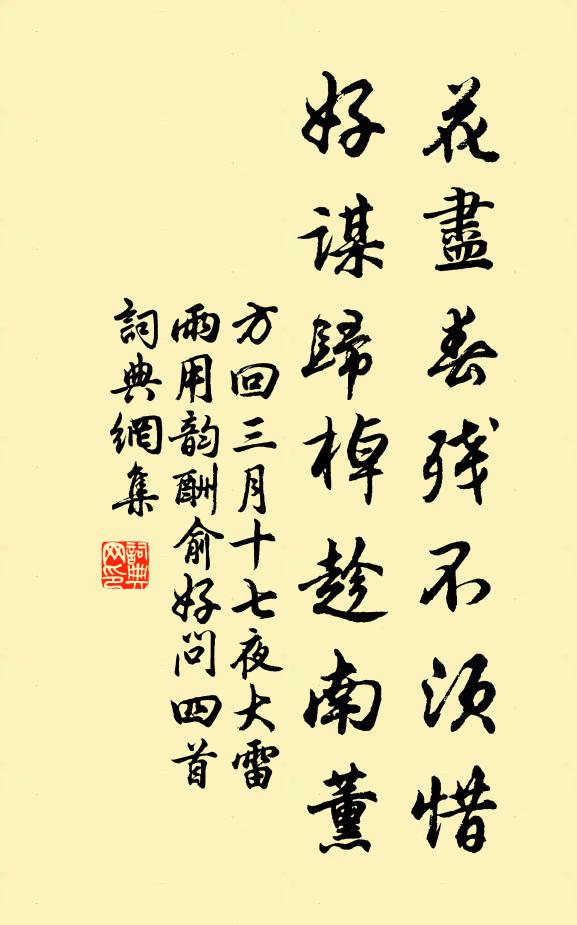 花盡春殘不須惜
好謀歸棹趁南薰
方回三月十七夜大雷
雨用韵酬俞好問四首
詞典網集
詞典
网印